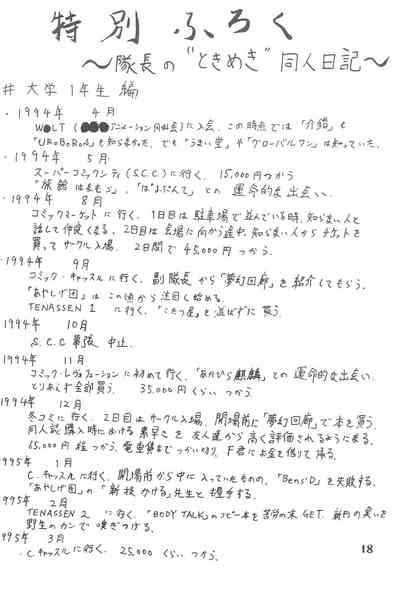 特別ふろく
〜隊長の"ときめき"同人日記〜
# 大学1年生 編
・1994年 4月
W●LT (●●●アニメーション同好会)に入会、この時点では「介錯」も
「URoBoRoS」も知らなかった。でも「うまい堂」や「グローバルワン」は知っていた。
・1994年 5月
スーパーコミックシティ(S.C.C)に行く。15,000円つかう
との運命的な出会い。
・1994年 8月
コミックマーケットに行く。1日目は駐車場で並んでいる時、知らない人と
話して仲良くなる。2日目は会場に向かう途中、知らない人からチケットを
買ってサークル入場。2日間で45,000円つかう。
・1994年 9月
コミック・キャッスルに行く、副隊長から「夢幻回廊」を紹介してもらう。
「あやしげ団」はこの頃から注目し始める。
TENASSEN 1 に行く、「こたつ屋」を並ばずに買う。
1994年 10月
S.C.C 幕張 中止.
1994年 11月
コミック・レヴォリューションに初めて行く、「あかぴら麒麟」との運命的な出会い.
とりあえず全部買う. 35,000円くらいつかう.
1994年 12月
冬コミに行く. 2日目はサークル入場. 開場前に「夢幻回廊」で本を買う.
同人誌購入時における素早さを友人達から高く評価されるようになる.
65,000円程つかう. 電車賃までつかい切り、F君にお金を借りて帰る.
995年 1月
C.キャッスルに行く. 開場前から中に入っていたものの、「Bens'D」を失敗する.
「あやしげ団」の「新技かける」先生と握手する.
995年 2月
TENASSEN 2 に行く.「BODY TALK」のコピー本を苦労の末、GET. 新刊の臭いを
野生のカンで嗅ぎつける.
995年 3月
・C.キャッスルに行く. 25,000くらいつかう.
18